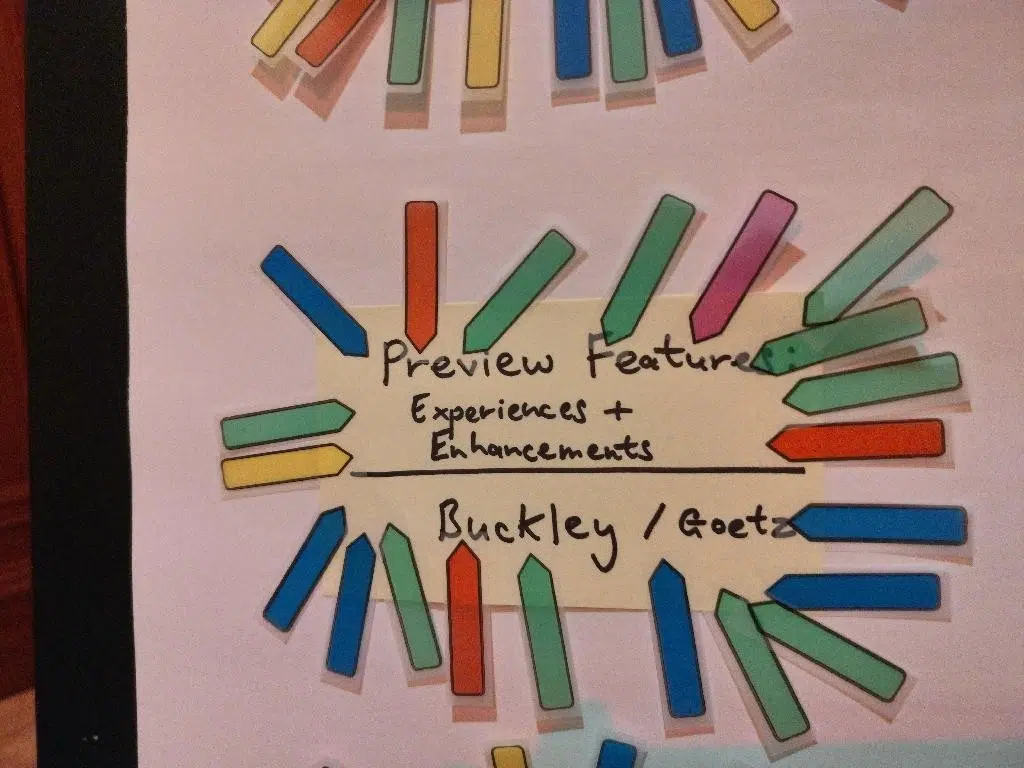 Preview Features:
Experiences +
Enhancements
Buckley / Goetz